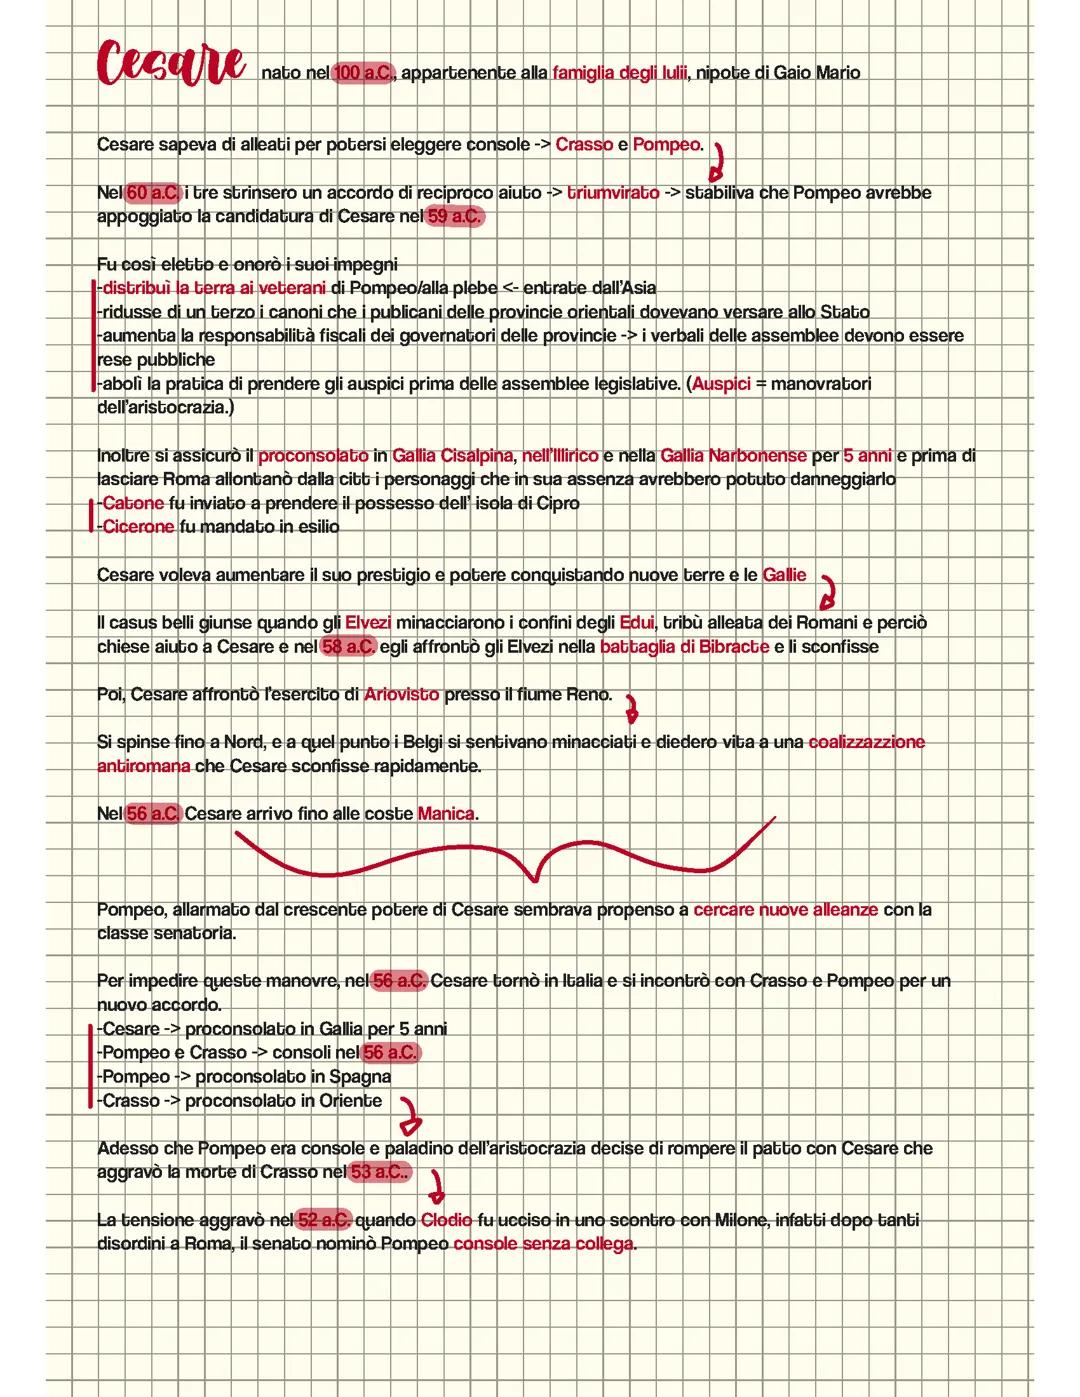 Cesare nato nel 100 a.C., appartenente alla famiglia degli Iulii, nipote di Gaio Mario
Cesare sapeva di alleati per potersi eleggere console -> Crasso e Pompeo.
Nel 60 a.C. i tre strinsero un accordo di reciproco aiuto -> triumvirato -> stabiliva che Pompeo avrebbe
appoggiato la candidatura di Cesare nel 59 a.C.
Fu così eletto e onorò i suoi impegni
-distribuì la terra ai veterani di Pompeo/alla plebe <- entrate dall'Asia
-ridusse di un terzo i canoni che i publicani delle provincie orientali dovevano versare allo Stato
-aumenta la responsabilità fiscali dei governatori delle provincie -> i verbali delle assemblee devono essere
rese pubbliche
-abolì la pratica di prendere gli auspici prima delle assemblee legislative. (Auspici = manovratori
dell'aristocrazia.)
Inoltre si assicurò il proconsolato in Gallia Cisalpina, nell'Illirico e nella Gallia Narbonense per 5 anni e prima di
lasciare Roma allontanò dalla citt i personaggi che in sua assenza avrebbero potuto danneggiarlo
-Catone fu inviato a prendere il possesso dell' isola di Cipro
-Cicerone fu mandato in esilio
Cesare voleva aumentare il suo prestigio e potere conquistando nuove terre e le Gallie
Il casus belli giunse quando gli Elvezi minacciarono i confini degli Edui, tribù alleata dei Romani e perciò
chiese aiuto a Cesare e nel 58 a.C. egli affrontò gli Elvezi nella battaglia di Bibracte e li sconfisse
Poi, Cesare affrontò l'esercito di Ariovisto presso il fiume Reno.
Si spinse fino a Nord, e a quel punto i Belgi si sentivano minacciati e diedero vita a una coalizzazzione
antiromana che Cesare sconfisse rapidamente.
Nel 56 a.C. Cesare arrivo fino alle coste Manica.
Pompeo, allarmato dal crescente potere di Cesare sembrava propenso a cercare nuove alleanze con la
classe senatoria.
Per impedire queste manovre, nel 56 a.C. Cesare tornò in Italia e si incontrò con Crasso e Pompeo per un
nuovo accordo.
-Cesare -> proconsolato in Gallia per 5 anni
-Pompeo e Crasso -> consoli nel 56 a.C.
-Pompeo -> proconsolato in Spagna
-Crasso -> proconsolato in Oriente
Adesso che Pompeo era console e paladino dell'aristocrazia decise di rompere il patto con Cesare che
aggravò la morte di Crasso nel 53 a.C..
La tensione aggravò nel 52 a.C. quando Clodio fu ucciso in uno scontro con Milone, infatti dopo tanti
disordini a Roma, il senato nominò Pompeo console senza collega.